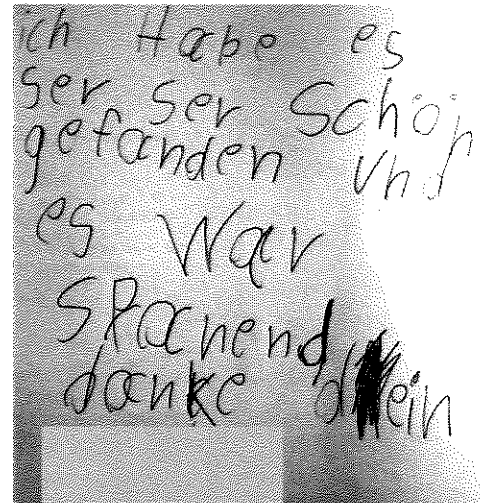 ich Habe es
ser ser ser Schön
gefanden und
es War
SPanend
danke dein